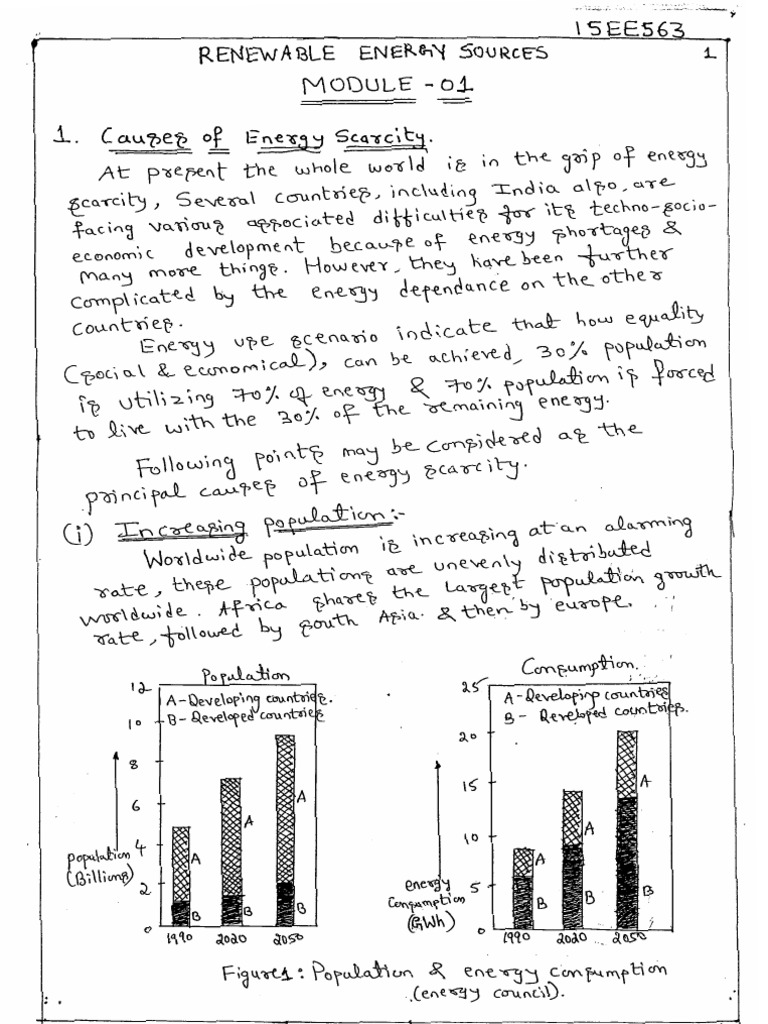 15EE563
RENEWABLE ENERGY SOURCES 1
MODULE -01
1. Causes of Energy Scarcity.
At present the whole world is in the grip of energy
scarcity, Several countries, including India also, are
facing various associated difficulties for its techno-socio-
economic development because of energy shortages &
many more things. However, they have been further
complicated by the energy dependance on the other
countries.
Energy use scenario indicate that how equality
(social & economical), can be achieved, 30% population
is utilizing 70% of energy & 70% population is forced
to live with the 30% of the remaining energy.
Following points may be considered as the
principal causes of energy scarcity.
(i) Increasing population:-
Worldwide population is increasing at an alarming
rate, these populations are unevenly distributed
worldwide. Africa shares the largest population growth
rate, followed by south Asia. & then by europe.
Population
12
A-Developing countries.
B- Developed countries
10
8
6
4
2
0
population
(Billions)
A
B
A
B
A
B
1990 2020 2050
Consumption.
25
A-Developing countries
B- Developed countries.
20
15
10
5
0
energy
Consumption
(GWh)
A
B
A
B
A
B
1990 2020 2050
Figure1: Population & energy consumption
(energy council).